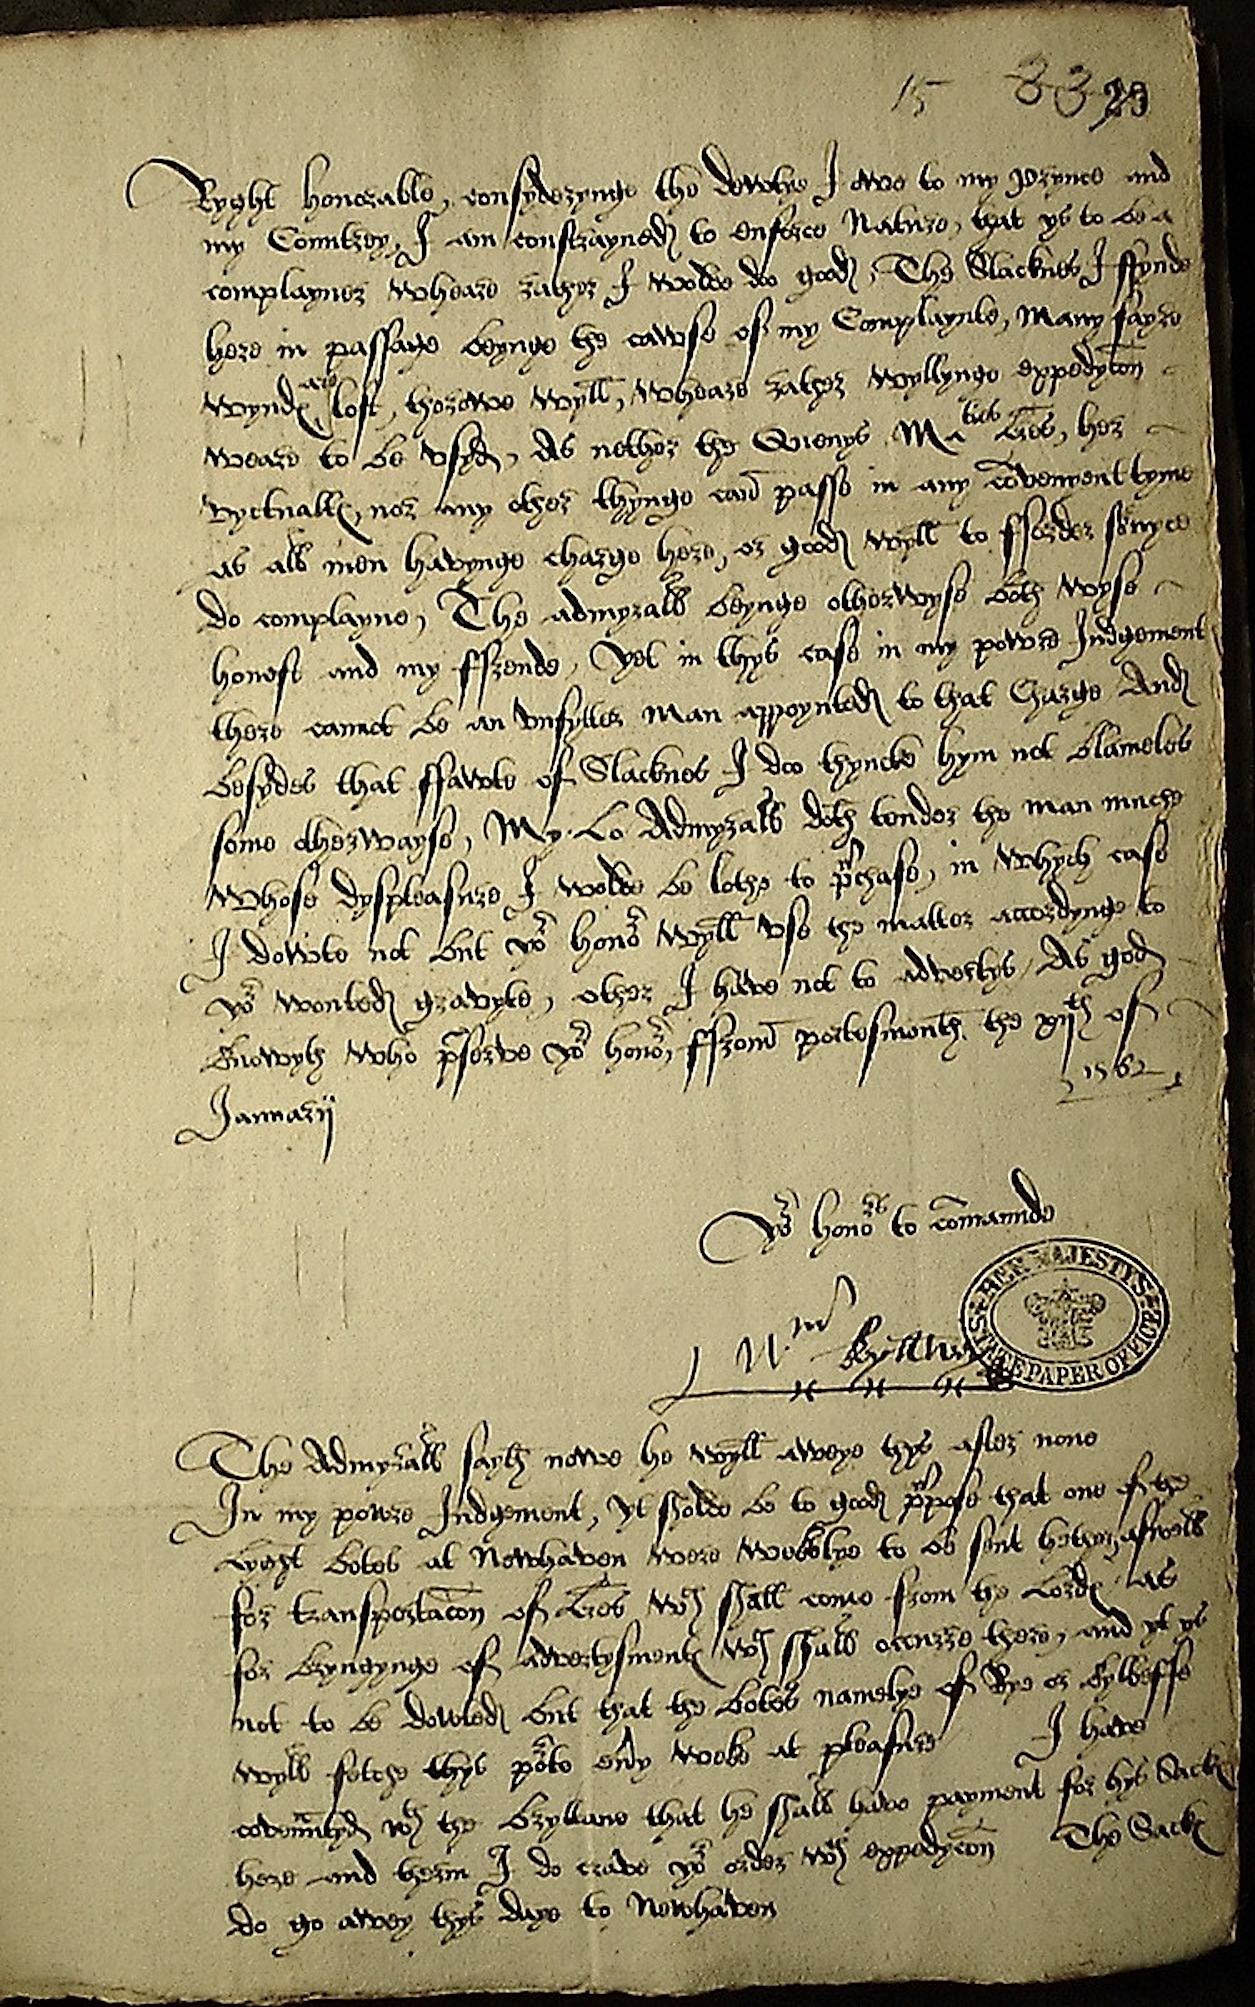 15 33 29
Ryght honorable, consyderynge the dewtye I owe to my prynce and
my Countrey, I am constrayned to enforce Nature, that ys to be a
complayner wheare rather I wolde doo good, The Slacknes I ffynde
here in passage beynge the cawse of my Complaynte, Many fayre
wyndes are lost, thorowe wyll, wheare rather wyllynge expedycon
weare to be vsyd, As nether the Quenys Maties lres, her
vyctualles, nor any other thynge can passe in any covenyent tyme
as all men havynge charge here, or good wyll to fforder servyce
do complayne, The admyrall beynge otherwyse both wyse
honest and my ffrende, Yet in thys case in my powre Judgement
there cannot be an vnfytter man appoynted to that Charge And
besydes that ffawte of Slacknes I doo thyncke hym not blameles
some otherwayse, My Lo Admyrall doth tender the man muche
whose dyspleasure I wolde be lothe to prchase, in whych case
I dowte not but yor honor wyll vse the matter accordynge to
yor wonted gravyte, other I have not to advertys, As god
knowyth who prserve yor honor, ffrom portesmouth the xijth of
Januarij 1562
Yor honors to comaunde
Wm Kyllwey
HER MAJESTYS STATE PAPER OFFICE
The Admyrall sayth nowe he wyll aweye thys after none
In my powre Judgement, yt sholde be to good prpose that one of the
lyght botes at Newhaven were weklye to be sent hether, aswell
for transportacon of lres wch shall come from the lordes as
for bryngynge of advertysmentes wch shall occurre there, and yt ys
not to be dowted but that the botes namelye of Rye or
wyll fetche thys porte every weke at pleasure I have
covenntyd wth the that he shall have payment for hys Sackes
here and therin I do crave yor order wth expedycon The Sackes
do go awey thys daye to Newhaven